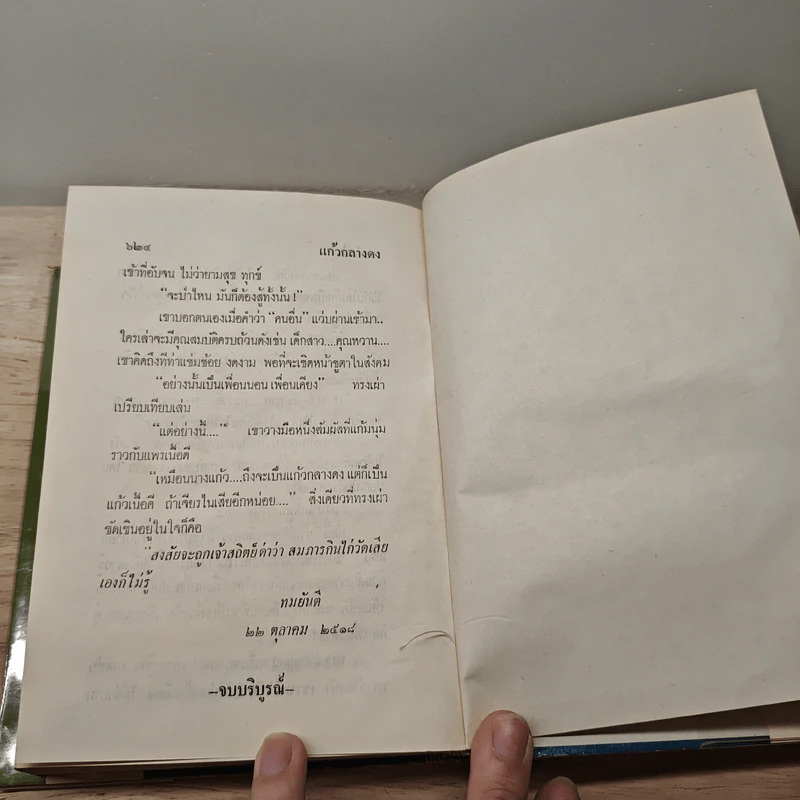 ๖๒๙ แก้วกลางดง
เข้าที่อับจน ไม่ว่ายามสุข ทุกข์
“จะบ้าไหน มันก็ต้องสู้ทั้งนั้น!”
เขาบอกตนเองเมื่อคำว่า “คนอื่น” แว่บผ่านเข้ามา..
ใครเล่าจะมีคุณสมบัติครบถ้วนดังเช่น เด็กสาว....คุณหวาน....
เขาคิดถึงทีท่าแช่มช้อย งดงาม พอที่จะเชิดหน้าชูตาในสังคม
“อย่างนั้นเป็นเพื่อนนอน เพื่อนเคียง” ทรงเผ่า
เปรียบเทียบเล่น
“แต่อย่างนี้....” เขาวางมือหนึ่งสัมผัสที่แก้มนุ่ม
ราวกับแพรเนื้อดี
“เหมือนนางแก้ว....ถึงจะเป็นแก้วกลางดง แต่ก็เป็น
แก้วเนื้อดี ถ้าเจียรไนเสียอีกหน่อย....” สิ่งเดียวที่ทรงเผ่า
ขัดเขินอยู่ในใจก็คือ
“สงสัยจะถูกเจ้าสถิตย์ด่าว่า สมภารกินไก่วัดเสีย
เองก็ไม่รู้
ทมยันตี
๒๒ ตุลาคม ๒๕๑๘
—จบบริบูรณ์—